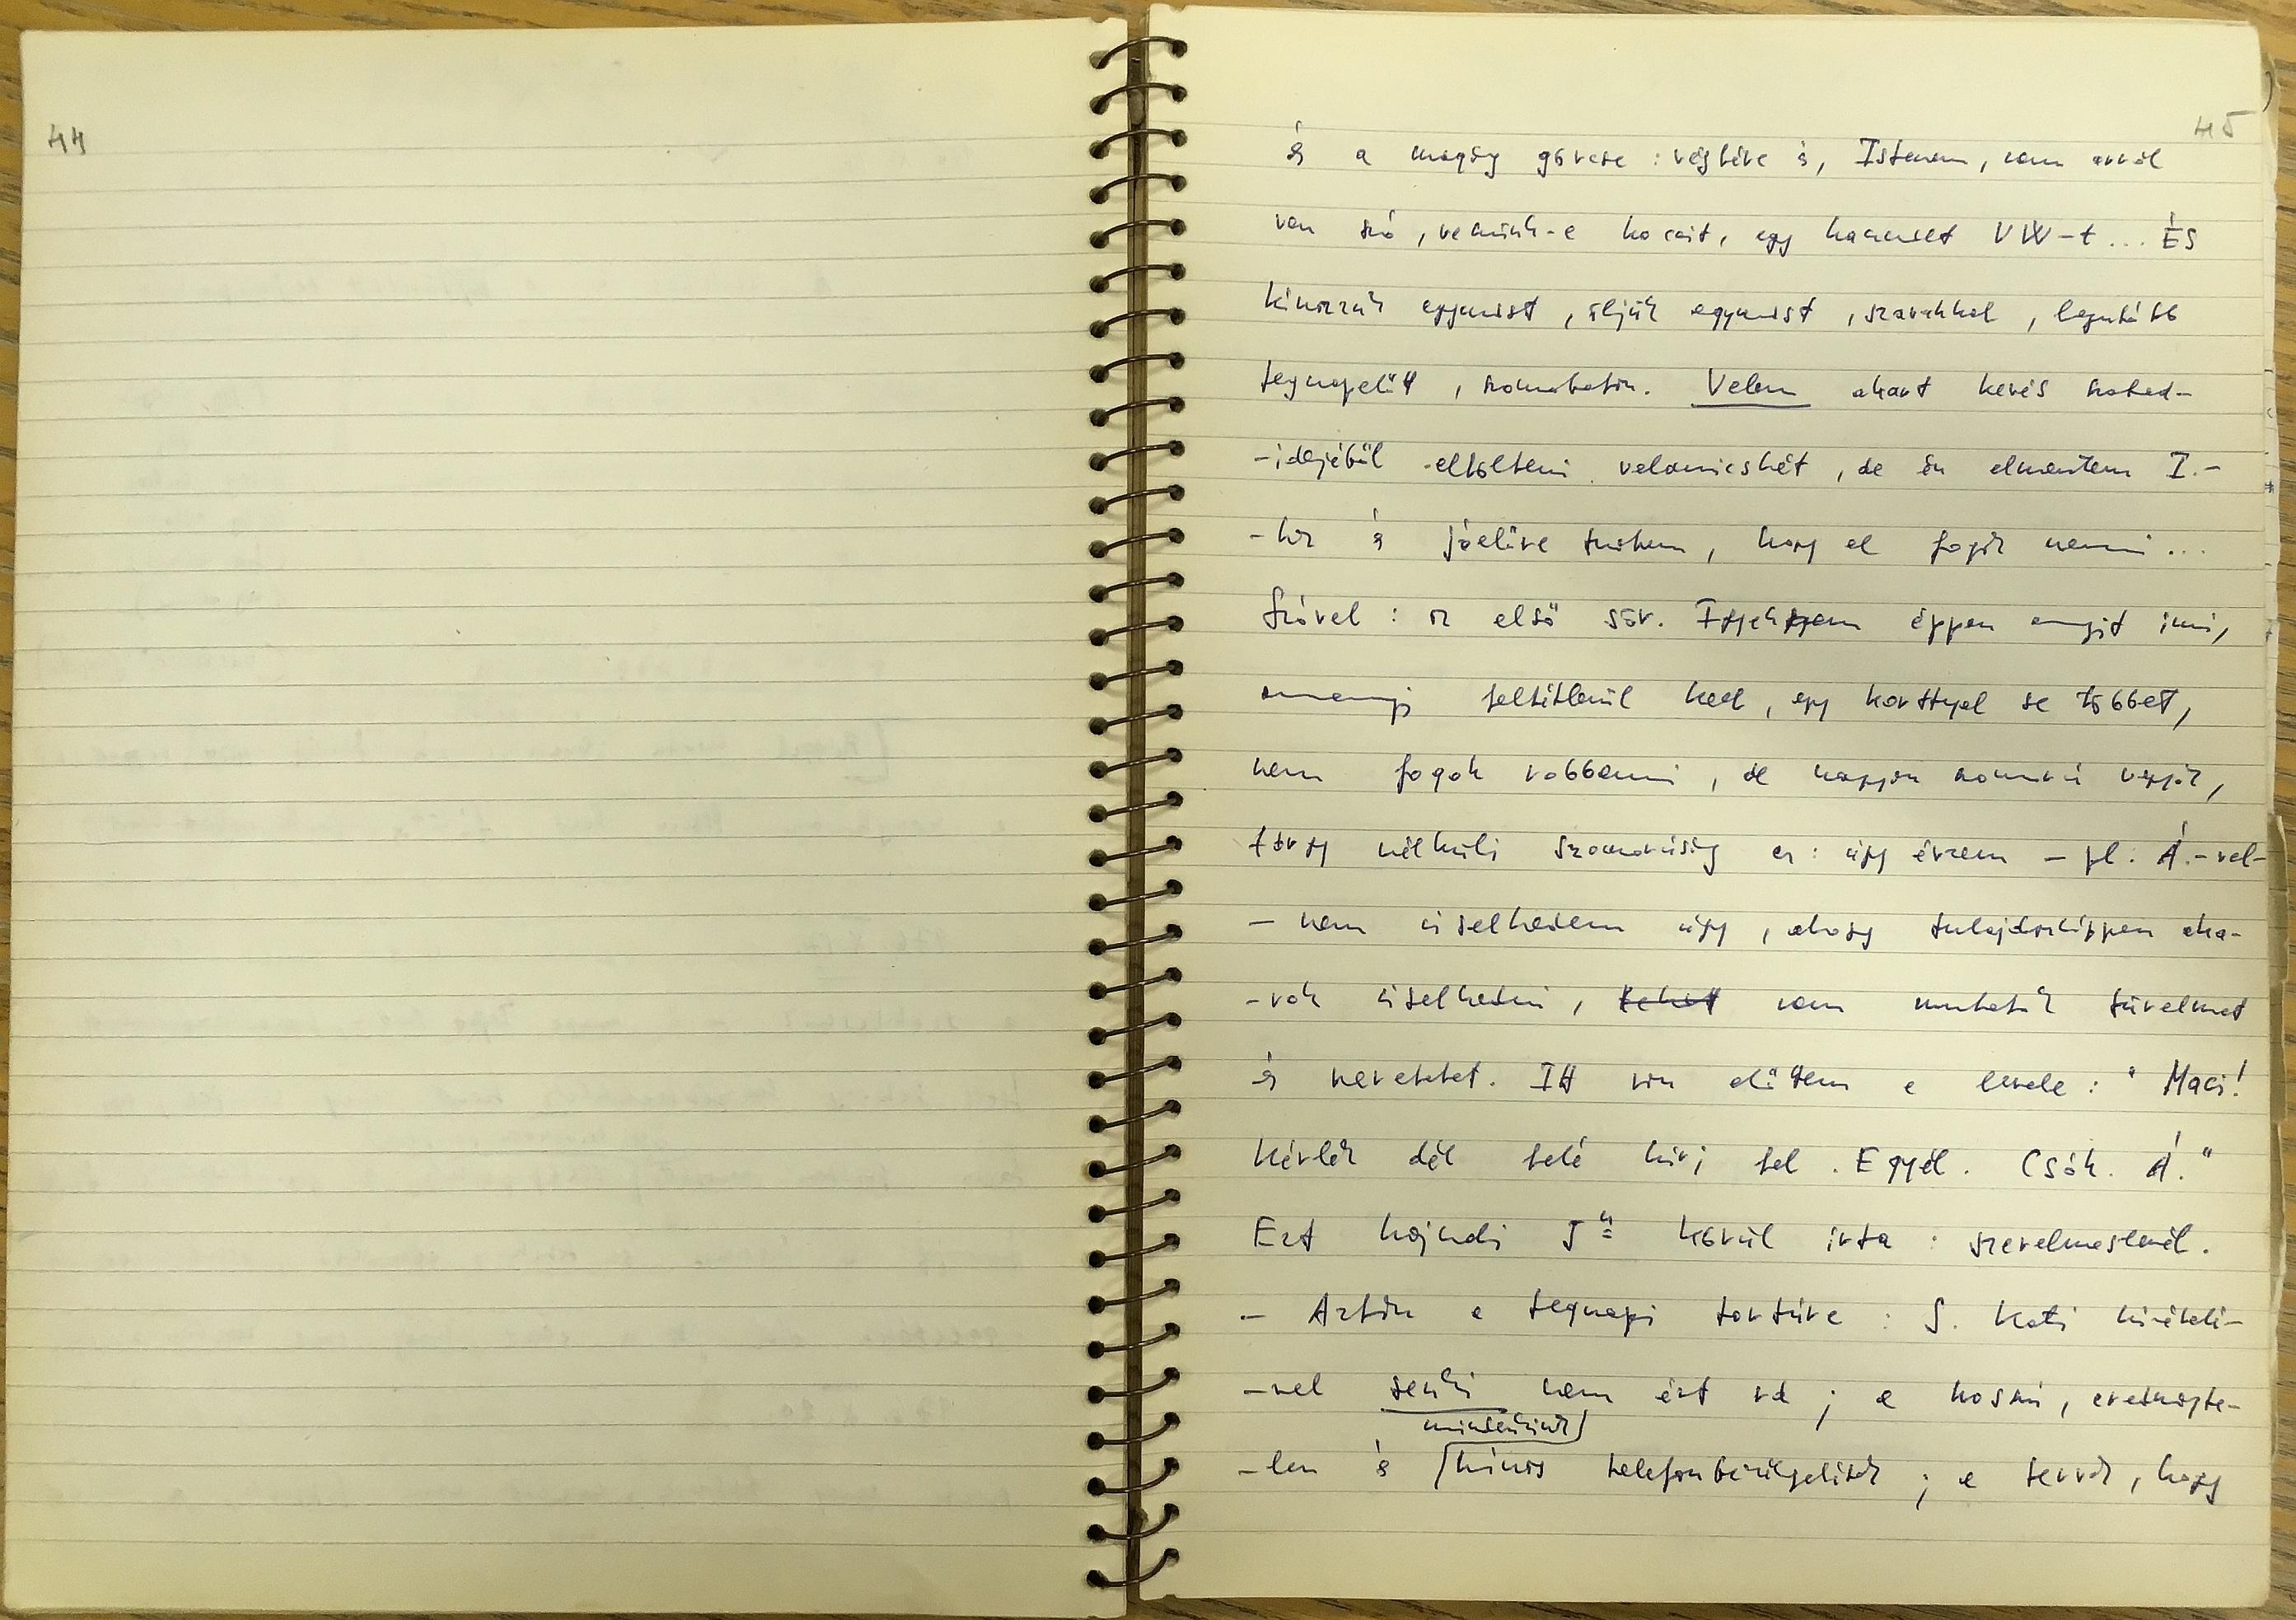 44
45
és a magány görcse : végtére is, Istenem, nem arról
van szó, vegyünk-e kocsit, egy használt VW-t... ÉS
kínozzuk egymást, öljük egymást, szavakkal, legutóbb
tegnapelőtt, szombaton. Velem akart kevés szabad-
-idejéből eltölteni valamicskét, de én elmentem I.-
-hez és jóelőre tudtam, hogy el fogok menni...
Szóval : az első sör. Igyekszem éppen annyit inni,
amennyi feltétlenül kell, egy korttyal se többet,
nem fogok robbanni, de nagyon szomorú vagyok,
tárgy nélküli szomorúság ez : úgy érzem – pl. Á.-val-
– nem viselkedem úgy, ahogy tulajdonképpen aka-
-rok viselkedni, nem mutatok türelmet
és nevetést. Itt van előttem a levele : "Maci!
Kérlek dél felé hívj fel. Egyél. Csók. Á."
Ezt hajnali 5 körül írta : szerelmeslevél.
– Aztán a tegnapi tortúra : S. Kati kivételé-
-vel senki nem ért rá ; a hosszú, eredményte-
mindenkinek
-len és kínos telefonbeszélgetések ; a terror, hogy